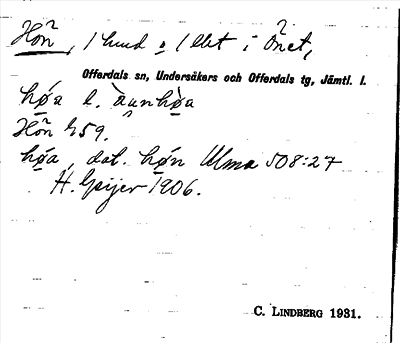 Hõn, 1 hud o 1 blt i Õnet,
Offerdals sn, Undersåkers och Offerdals tg, Jämtl. l.
hǿa l. àunhø̀a
Hõn 459.
hǿa, dat. hǿn Ulma 508:27
H. Geijer 1906.
C. LINDBERG 1931.